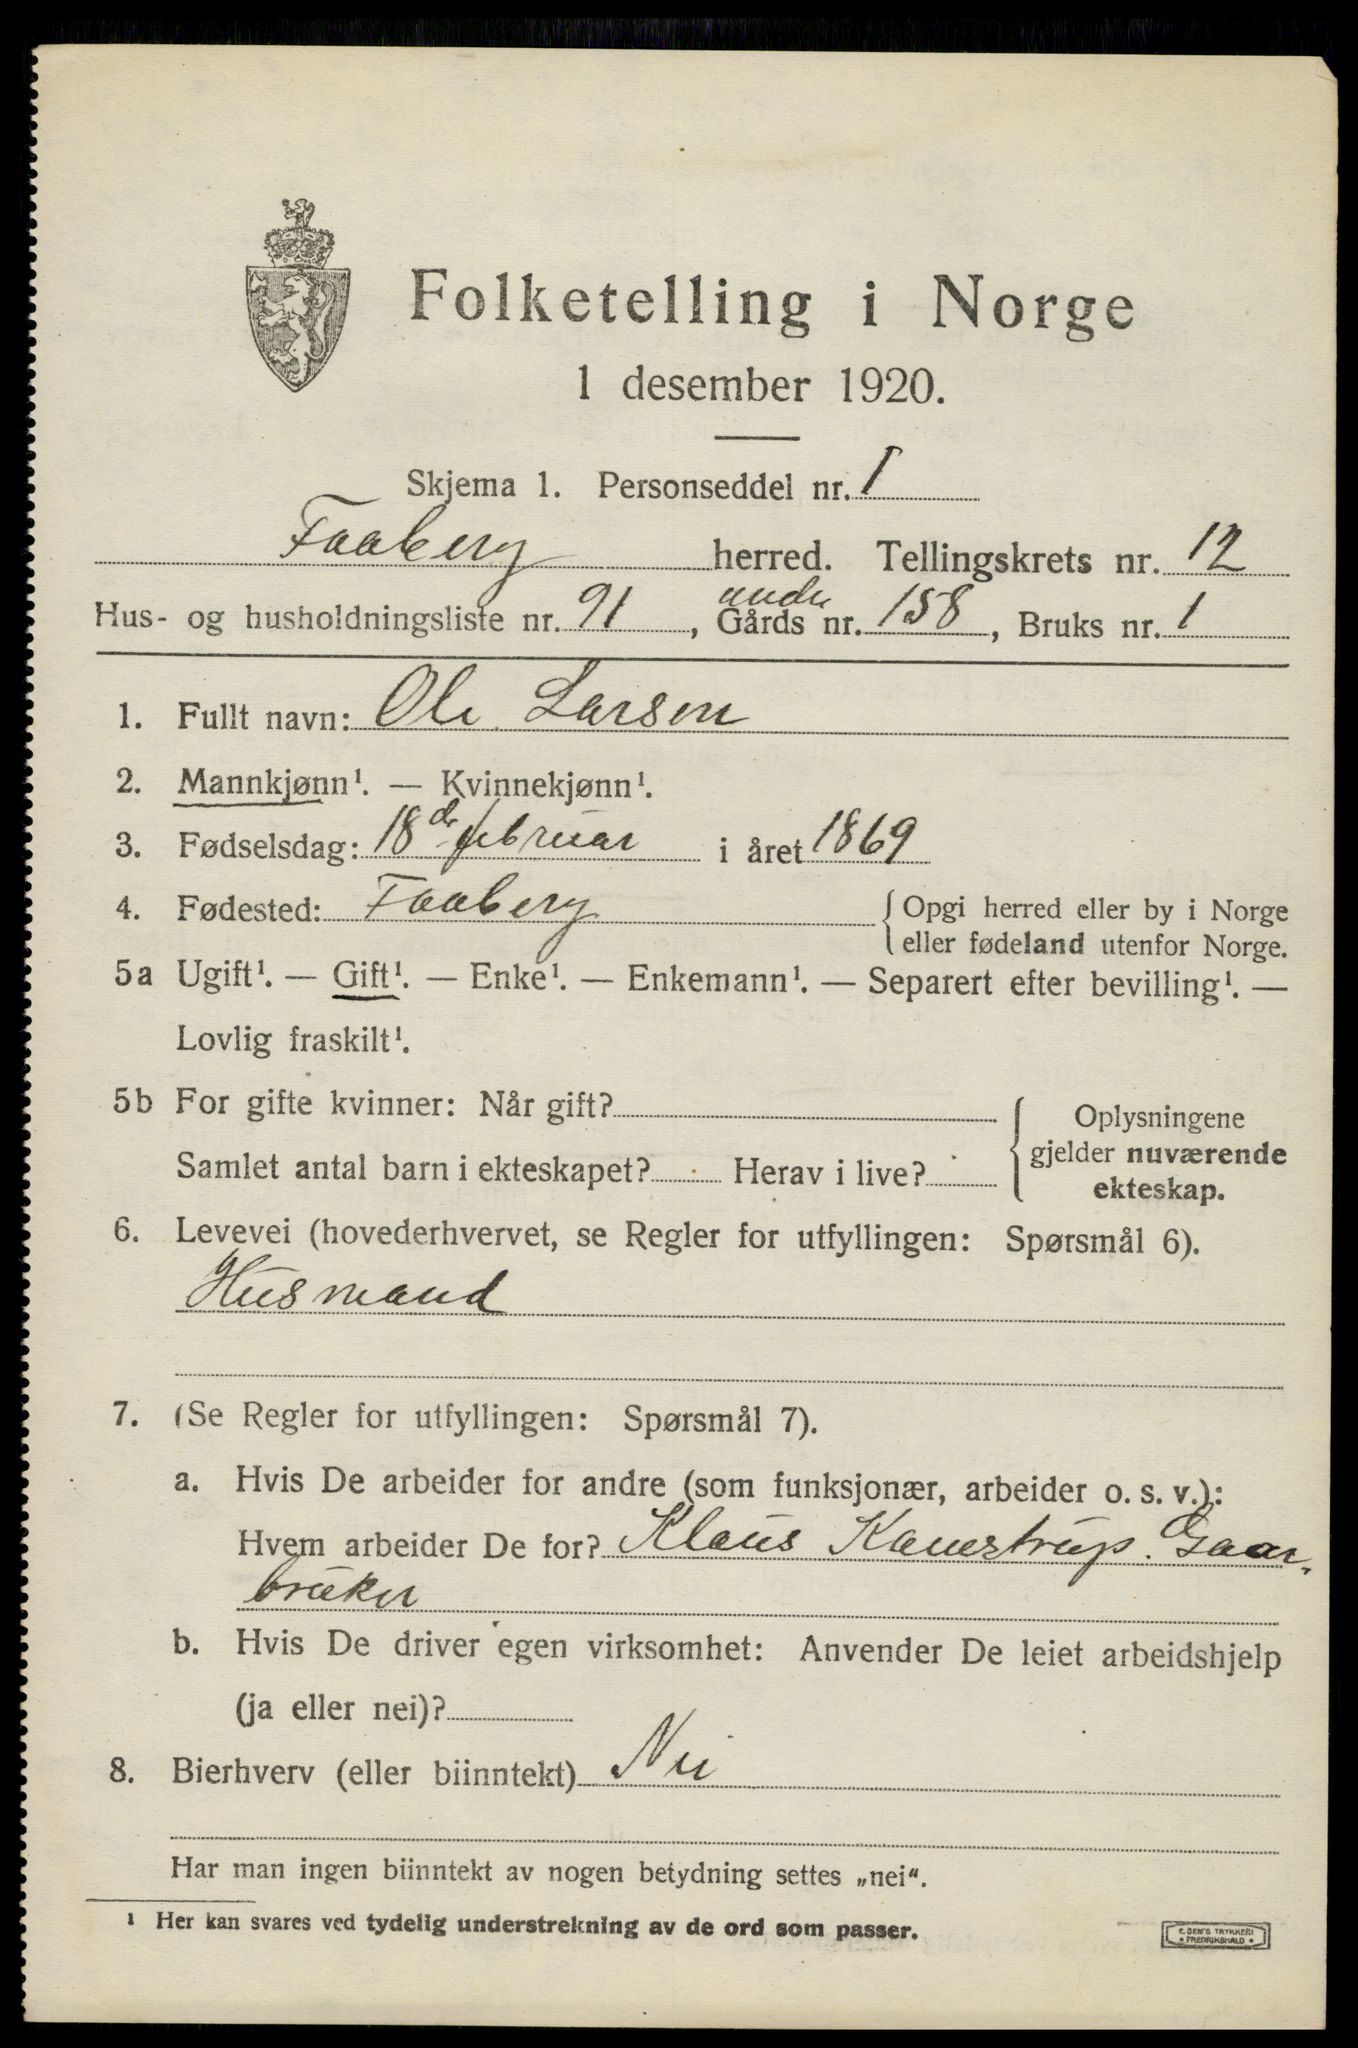 Folketelling i Norge
1 desember 1920.
Skjema 1. Personseddel nr. 1
Faaberg herred. Tellingskrets nr. 12
under
Hus- og husholdningsliste nr. 91, Gårds nr. 158, Bruks nr. 1
1. Fullt navn: Ole Larsen
2. Mannkjønn¹. — Kvinnekjønn¹.
3. Fødselsdag: 18de februar i året 1869
4. Fødested: Faaberg { Opgi herred eller by i Norge
eller fødeland utenfor Norge.
5a Ugift¹. — Gift¹. — Enke¹. — Enkemann¹. — Separert efter bevilling¹. —
Lovlig fraskilt¹.
5b For gifte kvinner: Når gift? { Oplysningene
gjelder nuværende
ekteskap.
Samlet antal barn i ekteskapet? Herav i live?
6. Levevei (hovederhvervet, se Regler for utfyllingen: Spørsmål 6).
Husmand
7. (Se Regler for utfyllingen: Spørsmål 7).
a. Hvis De arbeider for andre (som funksjonær, arbeider o. s. v.):
Hvem arbeider De for? Klaus Kanestrup. Gaar-
bruker
b. Hvis De driver egen virksomhet: Anvender De leiet arbeidshjelp
(ja eller nei)?
8. Bierhverv (eller biinntekt) Nei
Har man ingen biinntekt av nogen betydning settes „nei“.
¹ Her kan svares ved tydelig understrekning av de ord som passer.
E. SEM'S TRYKKERI
FREDRIKSHALD